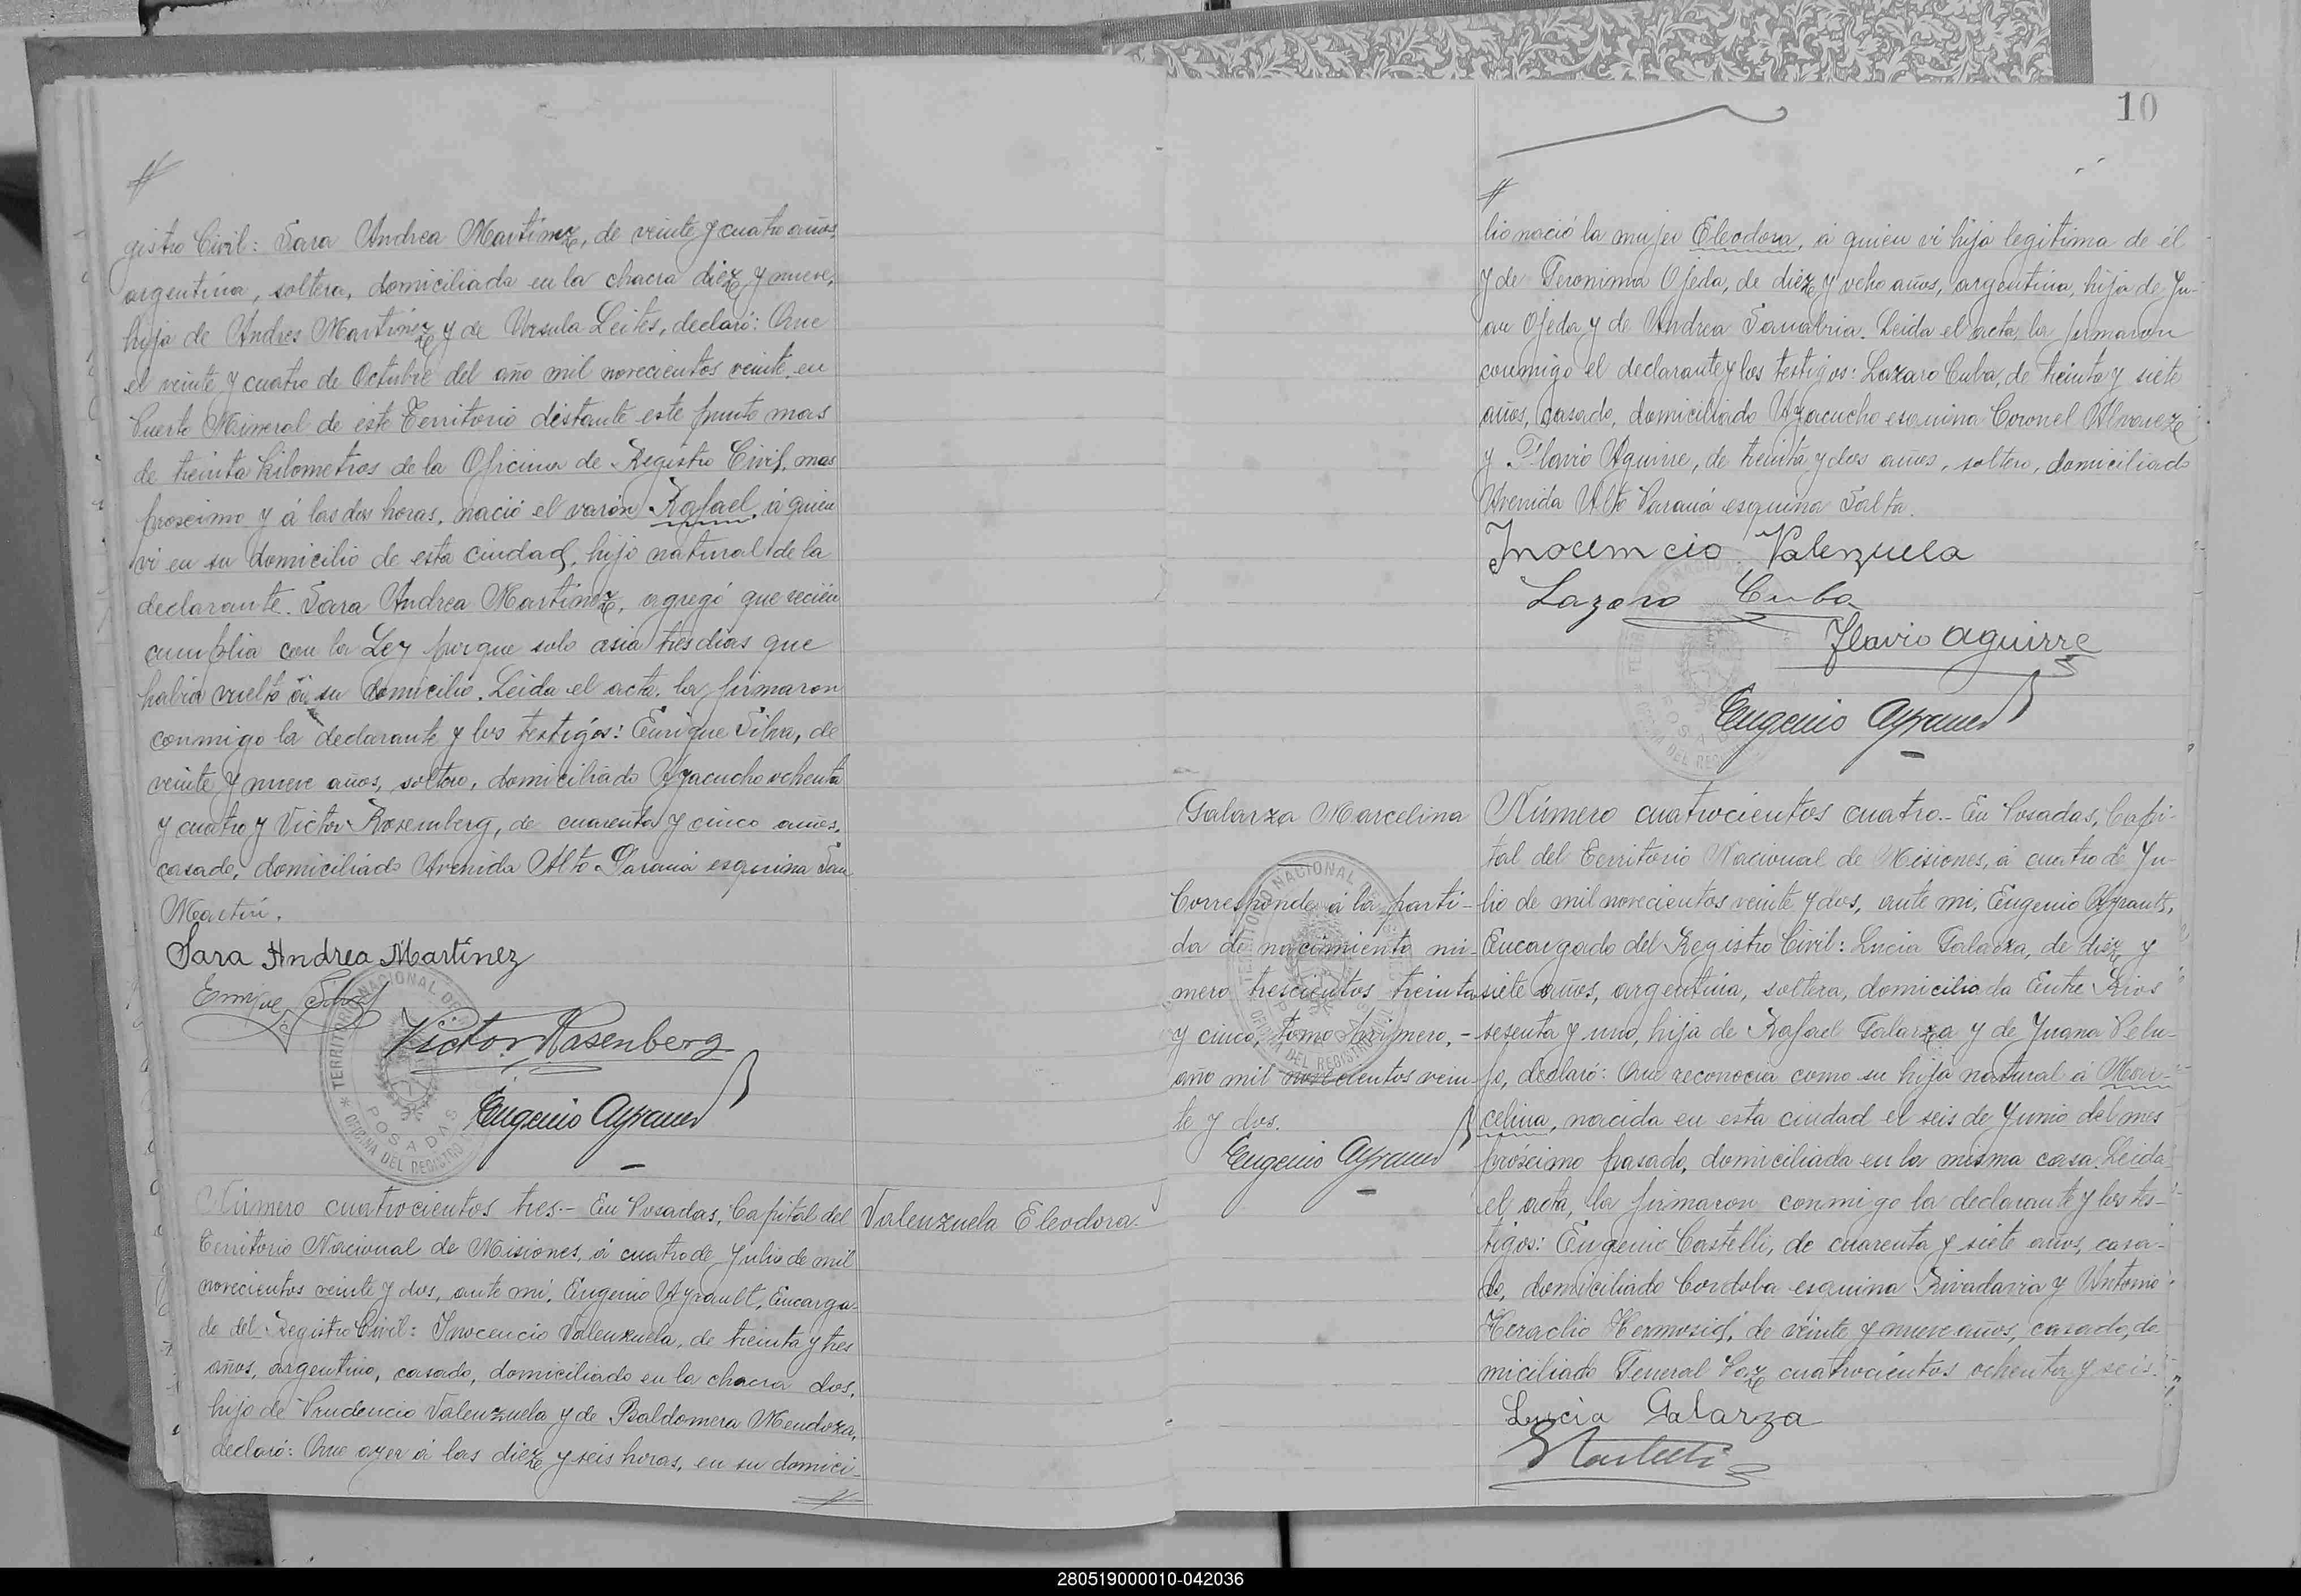 gistro Civil: Sara Andrea Martínez, de veinte y cuatro años,
argentina, soltera, domiciliada en la chacra diez y nueve,
hija de Andres Martinez y de Ursula Leites, declaró: Que
el veinte y cuatro de Octubre del año mil novecientos veinte, en
Puerto Mineral de este Territorio distante este punto mas
de treinta kilometros de la Oficina de Registro Civil, mas
proscimo y á las dos horas, nació el varón Rafael, á quien
vi en su domicilio de esta ciudad, hijo natural de la
declarante. Sara Andrea Martinez, agregó que recien
cumplia con la Ley porque solo asia tres dias que
habia vuelto á su domicilio. Leida el acta, la firmaron
conmigo la declarante y los testigos: Enrique Silva, de
veinte y nueve años, soltero, domiciliado Ayacucho ochenta
y cuatro y Victor Rosemberg, de cuarenta y cinco años,
casado, domiciliado Avenida Alto Paraná esquina San
Martin.
Sara Andrea Martínez
Enrique Silva
Victor Rosenberg
TERRITORIO NACIONAL DE
POSADAS
OFICINA DEL REGISTRO
Eugenio Ayrault
Número cuatrocientos tres.- En Posadas, Capital del
Valenzuela Eleodora.
Territorio Nacional de Misiones, á cuatro de Julio de mil
novecientos veinte y dos, ante mi, Eugenio Ayrault, Encarga-
do del Registro Civil: Inocencio Valenzuela, de treinta y tres
años, argentino, casado, domiciliado en la chacra dos,
hijo de Prudencio Valenzuela y de Baldomera Mendoza,
declaró: Que ayer á las diez y seis horas, en su domici-
10
lio nació la mujer Eleodora, á quien vi hija legitima de él
y de Geronima Ojeda, de diez y ocho años, argentina, hija de Ju-
an Ojeda y de Andrea Sanabria. Leida el acta, la firmaron
conmigo el declarante y los testigos: Lazaro Cuba, de treinta y siete
años, casado, domiciliado Ayacucho esquina Coronel Alvarez
y Flavio Aguirre, de treinta y dos años, soltero, domiciliado
Avenida Alto Paraná esquina Salta.
Inocencio Valenzuela
Lazaro Cuba
Flavio Aguirre
Eugenio Ayrault
Galarza Marcelina
Corresponde á la parti-
da de nacimiento nú-
mero trescientos treinta
y cinco, tomo primero,-
año mil novecientos vein-
te y dos.
Eugenio Ayrault
Número cuatrocientos cuatro.- En Posadas, Capi-
tal del Territorio Nacional de Misiones, á cuatro de Ju-
lio de mil novecientos veinte y dos, ante mi, Eugenio Ayrault,
Encargado del Registro Civil: Lucia Galarza, de diez y
siete años, argentina, soltera, domiciliada Entre Rios
sesenta y uno, hija de Rafael Galarza y de Juana Pelu-
fo, declaró: Que reconocia como su hija natural á Mar-
celina, nacida en esta ciudad el seis de Junio del mes
próscimo pasado, domiciliada en la misma casa. Leida
el acta, la firmaron conmigo la declarante y los tes-
tigos: Eugenio Castelli, de cuarenta y siete años, casa-
do, domiciliado Cordoba esquina Rivadavia y Antonio
Heraclio Hermosid, de veinte y nueve años, casado, do-
miciliado General Paz cuatrocientos ochenta y seis.
Lucia Galarza
E Castelli
280519000010-042036